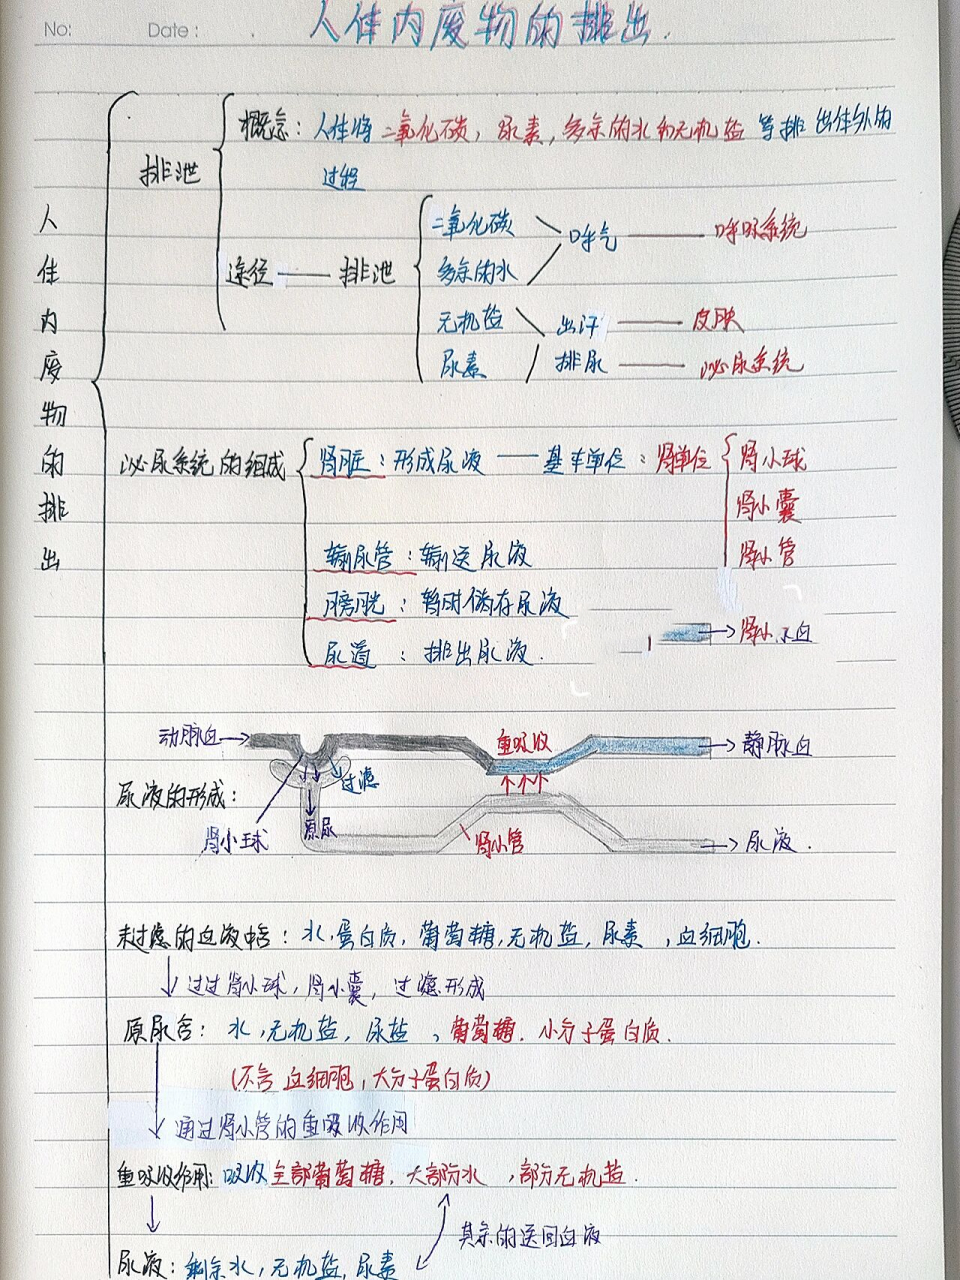 No:
Date:
人体内废物的排出.
概念：人体将二氧化碳，尿素，多余的水和无机盐等排出体外的
过程
排泄
途径——排泄
二氧化碳
多余的水
呼气——呼吸系统
无机盐
出汗——皮肤
尿素
排尿——泌尿系统
人体内废物的排出
泌尿系统的组成
肾脏：形成尿液——基本单位：肾单位
肾小球
肾小囊
肾小管
输尿管：输送尿液
膀胱：暂时储存尿液
尿道：排出尿液.
动脉血
重吸收
静脉血
过滤
尿液的形成：
肾小球
原尿
肾小管
尿液.
未过滤的血液中含：水,蛋白质,葡萄糖,无机盐,尿素,血细胞.
过过肾小球,肾小囊,过滤形成
原尿含：水,无机盐,尿盐,葡萄糖.小分子蛋白质.
(不含血细胞,大分子蛋白质)
通过肾小管的重吸收作用
重吸收作用：吸收全部葡萄糖.大部分水,部分无机盐.
其余的送回血液
尿液：剩余水,无机盐,尿素